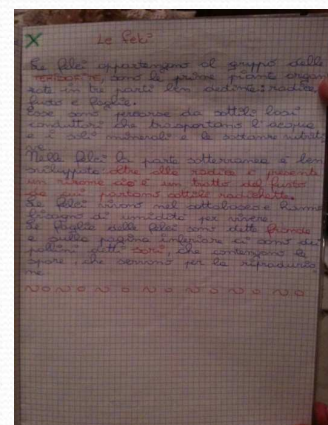 Le felci
Le felci appartengono al gruppo delle
PTERIDOFITE, sono le prime piante organiz
zate in tre parti ben distinte: radice
fusto e foglie.
Esse sono percorse da sottili vasi
conduttori che trasportano l'acqua
e i sali minerali e le sostanze nutriti
ve.
Nelle felci la parte sotterranea è ben
sviluppata oltre alla radice è presente
un rizoma cioè un tratto del fusto
da cui partono sottili radichette.
Le felci vivono nel sottobosco e hanno
bisogno di umidità per vivere.
Le foglie delle felci sono dette fronde
e sulla pagina inferiore ci sono dei
puntini detti "sori", che contengono le
spore, che servono per la riproduzio
ne.